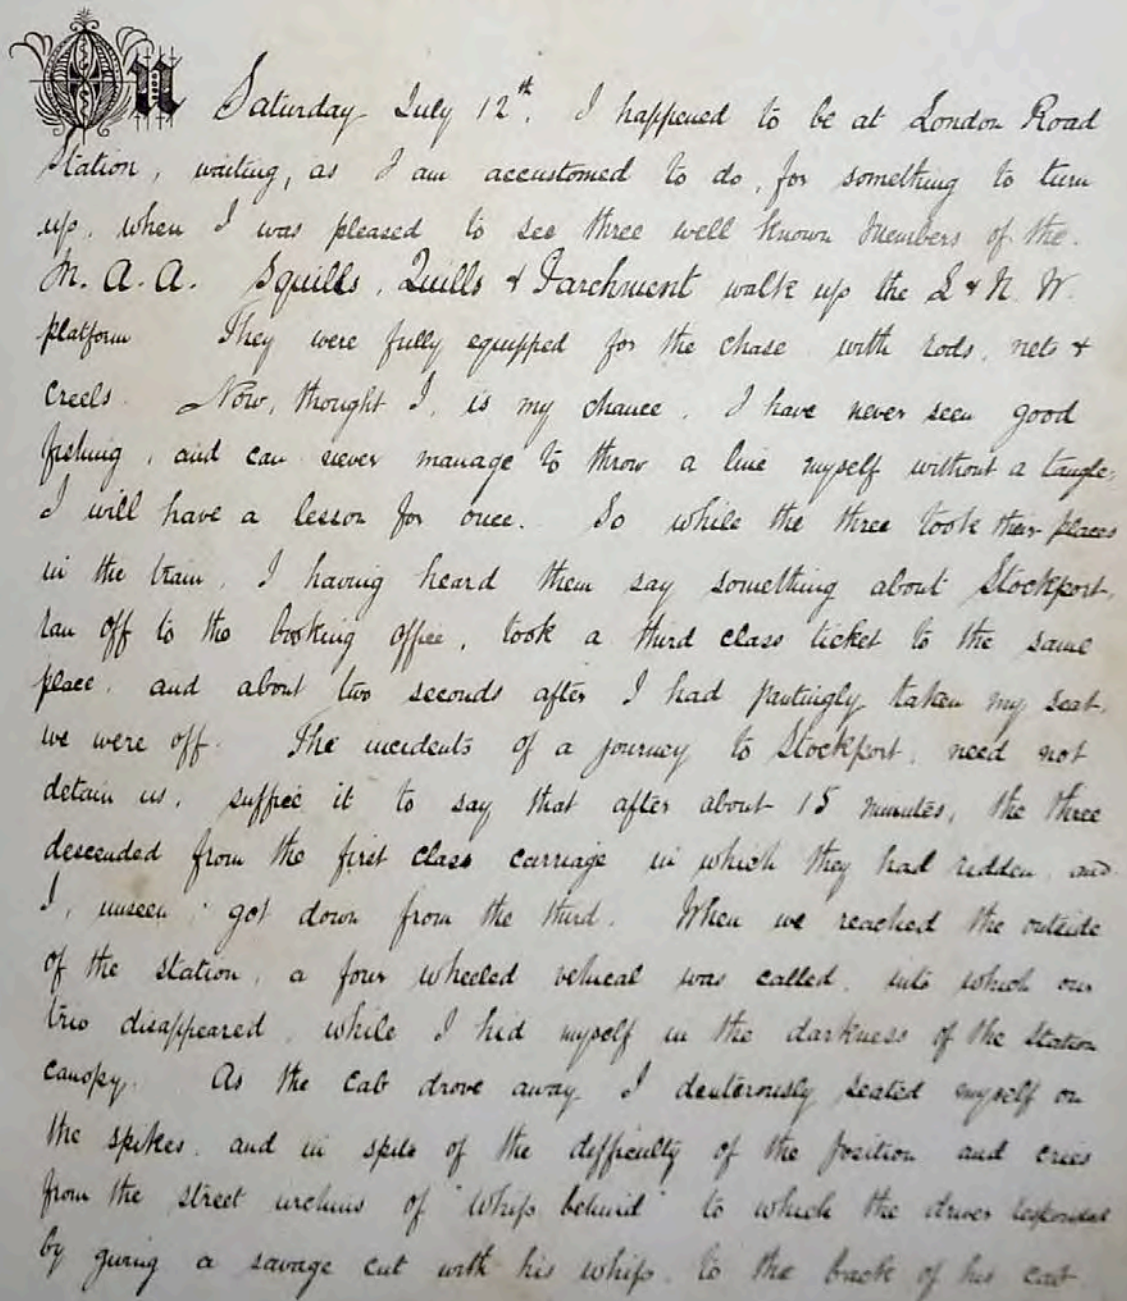 On Saturday July 12th. I happened to be at London Road
Station, waiting, as I am accustomed to do, for something to turn
up, when I was pleased to see three well known Members of the
M. A. A. Squills, Quills & Parchment walk up the L & N. W.
platform They were fully equipped for the chase with rods, nets &
creels. Now, thought I, is my chance. I have never seen good
fishing, and can never manage to throw a line myself without a tangle,
I will have a lesson for once. So while the three took their places
in the train, I having heard them say something about Stockport,
ran off to the booking office, took a third class ticket to the same
place, and about two seconds after I had pantingly taken my seat,
we were off. The incidents of a journey to Stockport, need not
detain us, suffice it to say that after about 15 minutes, the three
descended from the first class carriage in which they had ridden, and
I, unseen, got down from the third. When we reached the outside
of the station, a four wheeled vehical was called, into which our
trio disappeared, while I hid myself in the darkness of the station
canopy. As the cab drove away, I deuterously seated myself on
the spikes, and in spite of the difficulty of the position and cries
from the street urchins of "Whip behind" to which the driver responded
by giving a savage cut with his whip, to the back of his cab